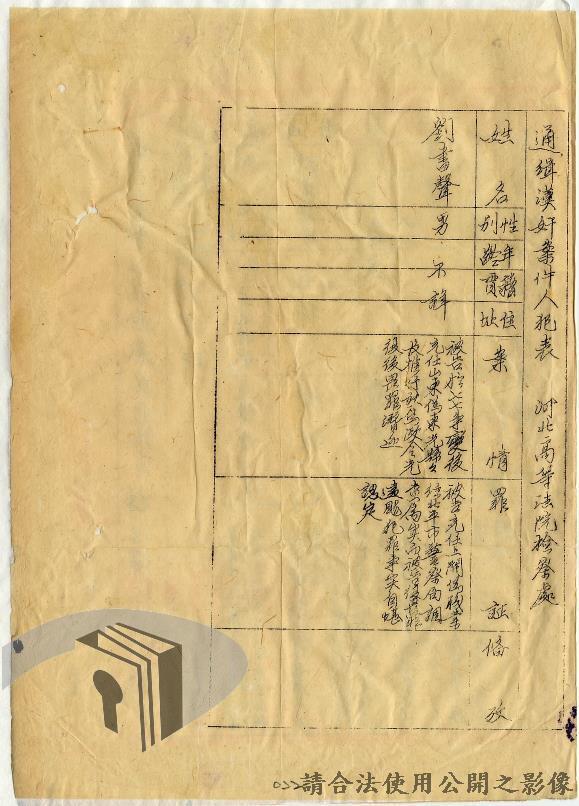 通緝漢奸案件人犯表　河北高等法院檢察處
姓名
性別
年齡
籍貫
住址
案情
罪証
備攷
劉書聲
男
不詳
被告於七七事變後
充任山東偽東光縣
偽政令光
復後畏罪潛逃
被告充任上開偽職業
經北平市警察局調
查屬實而被告
逃匿犯罪事實自堪
認定
022請合法使用公開之影像